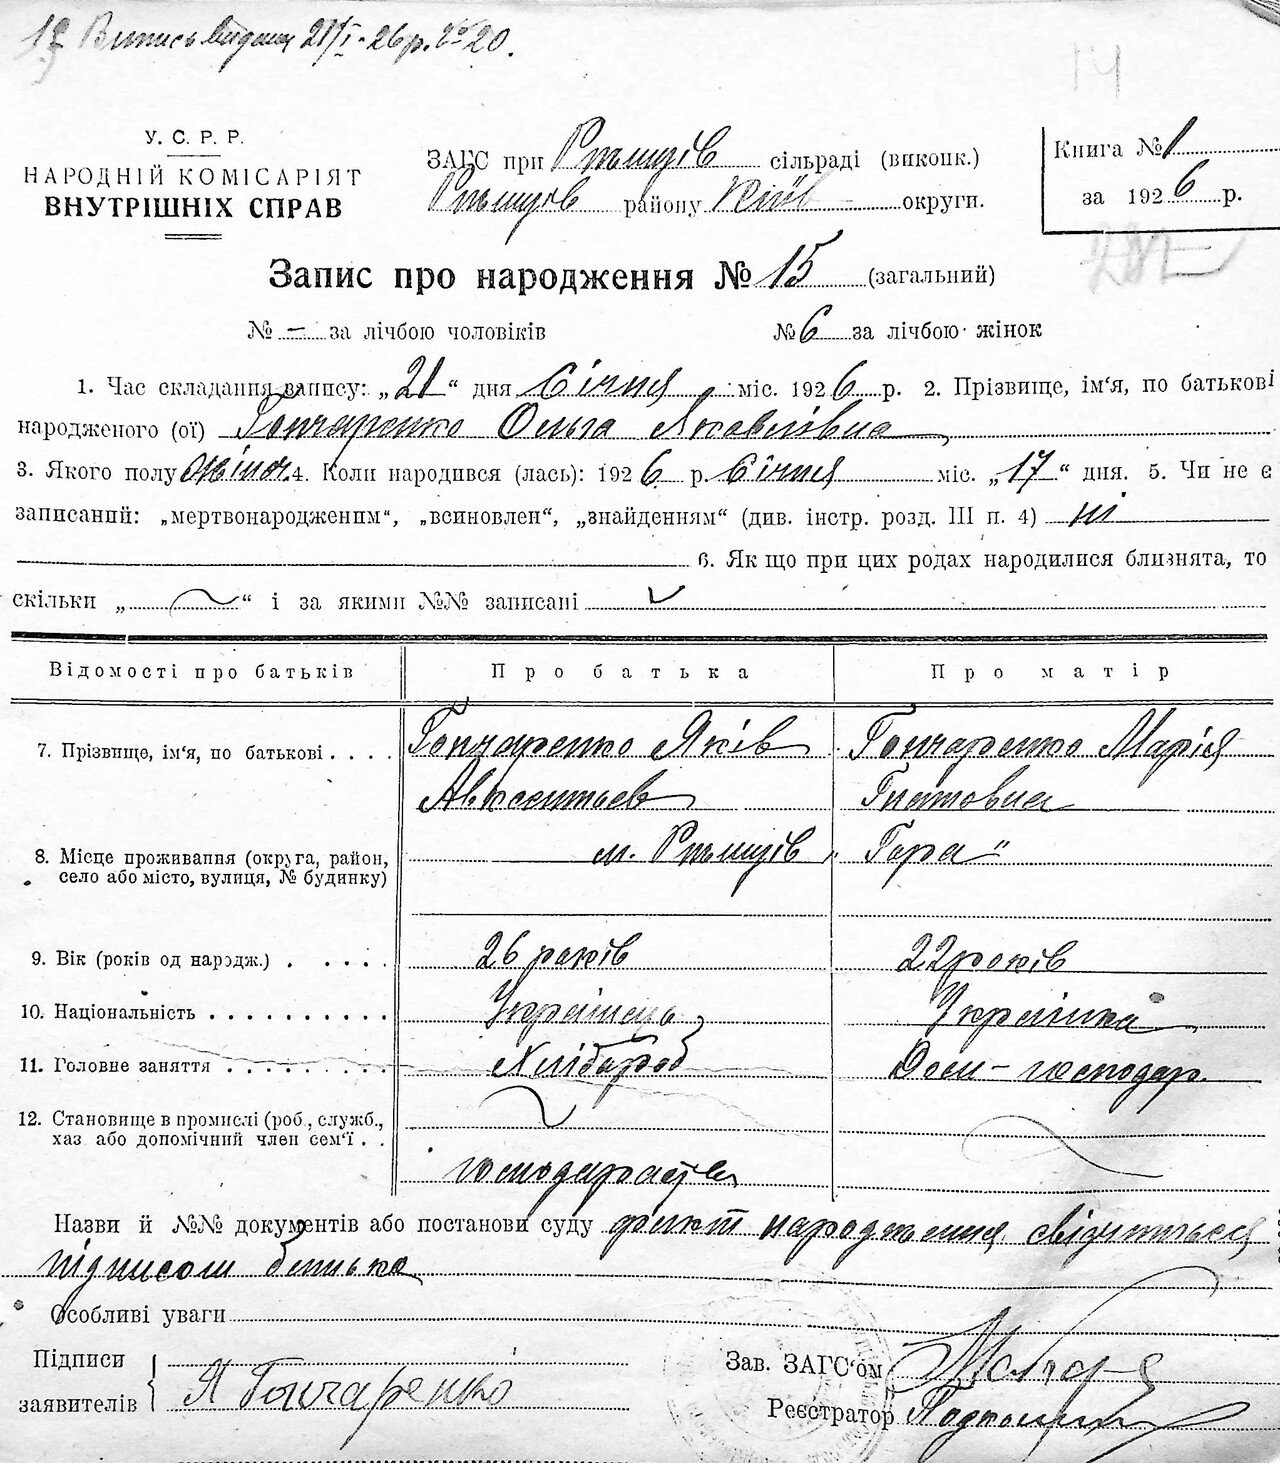 Випись видана 21/I-26 р. № 20.
14
У. С. Р. Р.
НАРОДНІЙ КОМІСАРІЯТ
ВНУТРІШНІХ СПРАВ
ЗАГС при Ржищів сільраді (виконк.)
Ржищів району Київ округи.
Книга № 1
за 1926 р.
Запис про народження № 15 (загальний)
№ – за лічбою чоловіків № 6 за лічбою жінок
1. Час складання запису: „21“ дня Січня міс. 1926 р. 2. Прізвище, ім'я, по батькові
народженого (ої) Гончаренко Ольга Яковлівна
3. Якого полу жіноч. 4. Коли народився (лась): 1926 р. Січня міс. „17“ дня. 5. Чи не є
записаний: „мертвонародженим“, „всиновлен“, „знайденням“ (див. інстр. розд. III п. 4) ні
6. Як що при цих родах народилися близнята, то
скільки „ “ і за якими №№ записані
Відомості про батьків Про батька Про матір
7. Прізвище, ім'я, по батькові . . . . Гончаренко Яків Гончаренко Марія
Авксентьев Гнатовна
8. Місце проживання (округа, район, м. Ржищів „Гора“
село або місто, вулиця, № будинку)
9. Вік (років од народж.) . . . . . 26 років 22 років
10. Національність . . . . . . . . . . Українець Українка
11. Головне заняття . . . . . . . . . Хлібороб Дом-господар.
12. Становище в промислі (роб., служб.,
хаз або допомічний член сем'ї . .
господарства
Назви й №№ документів або постанови суду факт народження свідчиться
підписом батька
Особливі уваги
Підписи
заявителів Я Гончаренко
Зав. ЗАГС'ом
Реєстратор